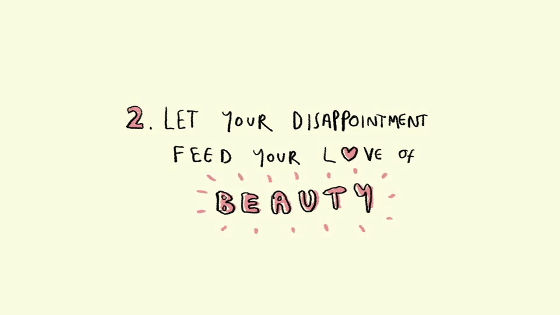 2. LET YOUR DISAPPOINTMENT
FEED YOUR LOVE OF
BEAUTY